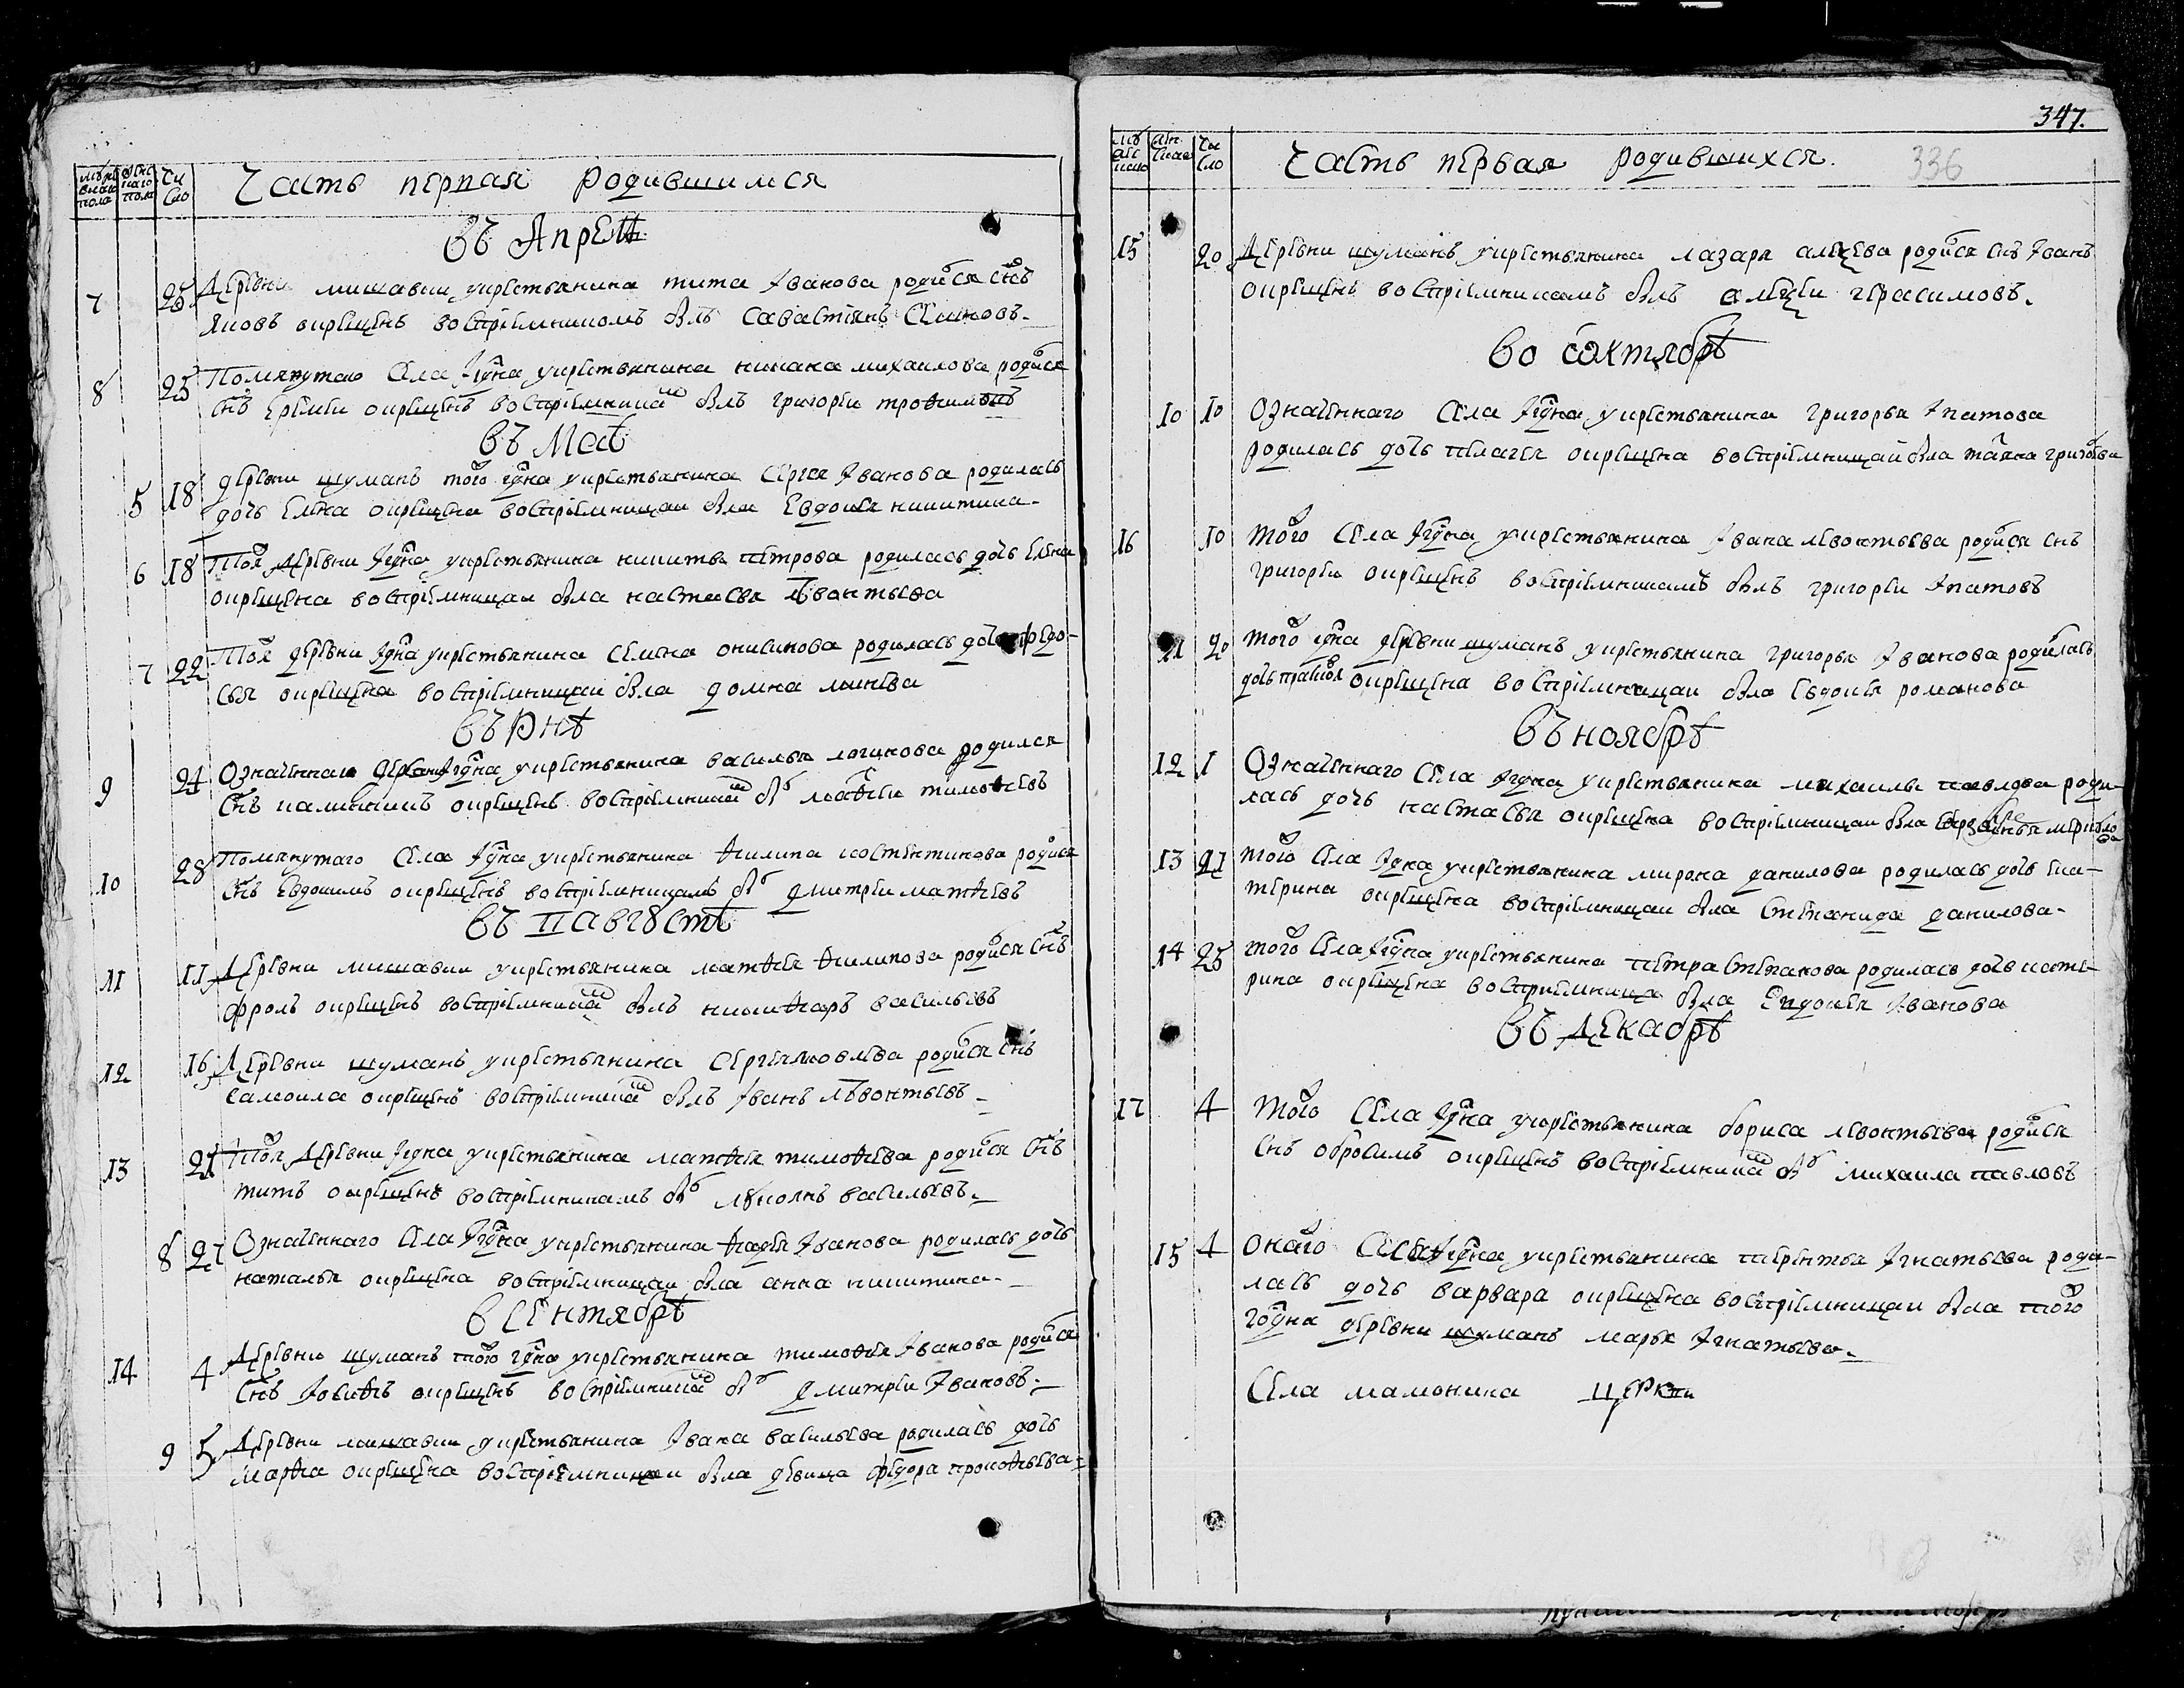 мужеска пола
женс наго пола
Чи сло
Часть первая родившимся
Въ Апреле
7 25 Деревни мишавки укрестьянина тита Иванова родися снъ
яковъ окрещенъ восприемникомъ былъ Савастиянъ
8 25 Помянутаго села укрестьянина михаилова родися
снъ Еремеи окрещенъ восприемникамъ былъ григореи трофимовъ
въ Маѣ
5 18 деревни шуманъ того укрестьянина Сергея Иванова родилась
дочь Елена окрещена восприемницаи была Евдокея никитина
6 18 Тоя Деревни укрестьянина никиты петрова родилась дочь Елена
окрещена восприемницаи была настасья Леонтьева
7 22 Тоя деревни укрестьянина Семена онисимова родилась дочь федо-
сья окрещена восприемницаи была домна
въ Июнѣ
9 24 Означеннаго укрестьянина василья логинова родился
снъ окрещенъ восприемникамъ бы матвеи тимофеевъ
10 28 Помянутаго села укрестьянина филипа костентинова родися
снъ Евдокимъ окрещенъ восприемникамъ бы дмитреи матвеевъ
въ Августѣ
11 11 Деревни мишавки укрестьянина матвея филипова родися снъ
фролъ окрещенъ восприемникамъ былъ никифаръ васильевъ
12 16 Деревни шуманъ укрестьянина Сергея родися снъ
самоила окрещенъ восприемникамъ былъ Иванъ Левонтьевъ
13 21 Тоя Деревни укрестьянина матвея тимофеева родися снъ
титъ окрещенъ восприемникамъ бы васильевъ
8 27 Означеннаго Села укрестьянина фадея Иванова родилась дочь
наталья окрещена восприемницаи была анна никитина
в Сентябрѣ
14 4 Деревни шуманъ того укрестьянина тимофея Иванова родися
снъ Иосифъ окрещенъ восприемникамъ бы дмитреи Ивановъ
9 5 Деревни мишавки укрестьянина Ивана васильева родилась дочь
марфа окрещена восприемницаи была девица федора прокофьева
347.
Чи сло
Часть первая родившихся. 336
15 20 Деревни шуманъ укрестьянина лазаря алексеева родися снъ Иванъ
окрещенъ восприемникамъ былъ алексеи герасимовъ.
Во октябрѣ
10 10 Означеннаго Села укрестьянина григорья Ипатова
родилась дочь пелагея окрещена восприемницаи была григорьева
16 10 того Села укрестьянина Ивана левонтьева родися снъ
григореи окрещенъ восприемникамъ былъ григореи Ипатовъ
11 20 того деревни шуманъ укрестьянина григорья Иванова родилась
дочь окрещена восприемницаи была Евдокея романова
Въ ноябрѣ
12 1 Означеннаго Села укрестьянина михаилы павлова роди-
лась дочь настасья окрещена восприемницаи была
13 21 того Села укрестьянина мирона данилова родилась дочь Ека-
терина окрещена восприемницаи была Степанида данилова
14 25 того Села укрестьянина петра Степанова родилась дочь кате-
рина окрещена восприемница была Евдокея Иванова
Въ Декабрѣ
17 4 того Села укрестьянина бориса левонтьева родися
снъ обросимъ окрещенъ восприемникамъ бы михаила павловъ
15 4 онаго укрестьянина терентья Игнатьева роди-
лась дочь варвара окрещена восприемницаи была того
деревни шуманъ марья Игнатьева.
Села мамонина церкви